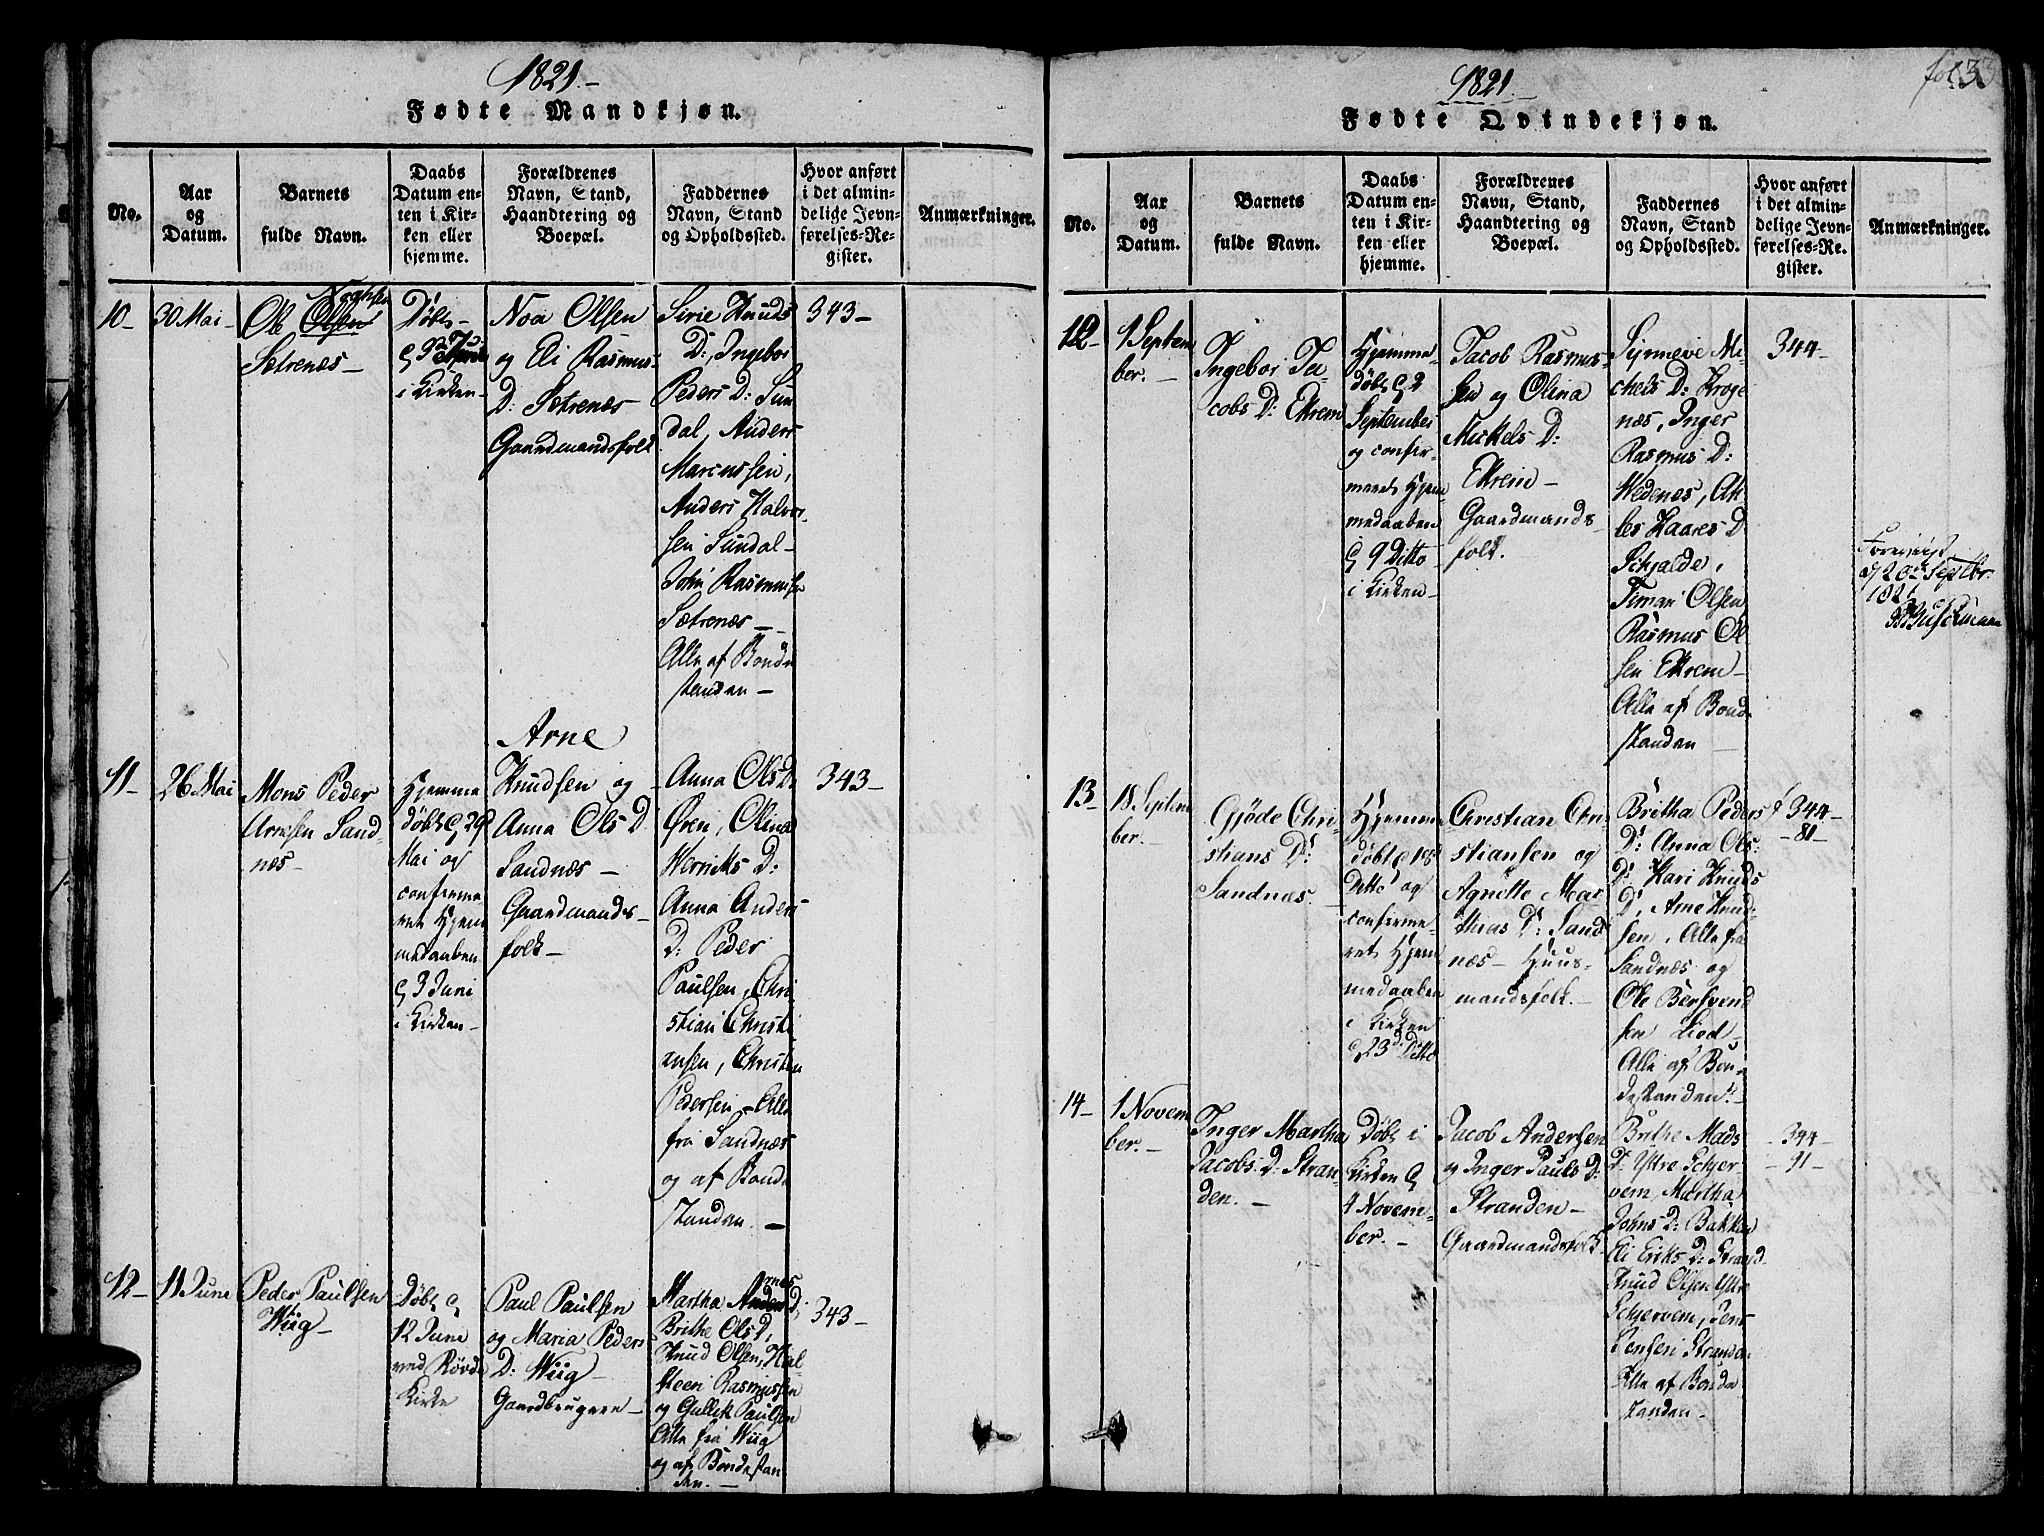 1821.-
Fødte Mandkjøn.
No.
Aar
og
Datum.
Barnets
fulde Navn.
Daabs
Datum en-
ten i Kir-
ken eller
hjemme.
Forældrenes
Navn, Stand,
Haandtering og
Boepæl.
Faddernes
Navn, Stand
og Opholdssted.
Hvor anført
i det almin-
delige Jevn-
førelses-Re-
gister.
Anmærkninger.
10-
30 Mai-
Noahsen
Ole Olsen
Setrenæs-
Døbt-
i Kirken-
Noa Olsen
og Eli Rasmus-
D: Setrenæs
Gaardmandsfolk
Sirie Knuds
D:, Ingebor
Peders D: Sun
dal, Anders
Marcussen,
Anders Halvor-
sen Sundal-
John Rasmussen
Setrenæs-
Alle af Bonde
standen-
343-
11-
26 Mai
Mons Peder
Arnesen Sand-
næs-
Hjemme
døbt d 29
Mai og
confirme
ret Hjem
medaaben
d 3 Juni
i Kirken-
Arne
Knudsen og
Anna Ols D.
Sandnæs-
Gaardmands-
folk-
Anna Ols D.
Øren, Olina
Henriks D:
Anna Anders
D: Peder
Paulsen, Chri
stian Christi
ansen, Christen
Pedersen- Alle
fra Sandnæs
og af Bond-
standen.-
343-
12-
11 June
Peder Paulsen
Wiig-
Døbt d
12 June
ved Røvde
Kirke
Paul Paulsen
og Maria Peders
D: Wiig-
Gaardbrugere-
Martha Arnes D:
Brithe Ols D,
Knud Olsen, Hal-
steen Rasmussen
og Gullik Paulsen
Alle fra Wiig
og af Bondestan
den.-
343-
fol. 33
1821.-
Fødte Qvindekjøn.
No.
Aar
og
Datum.
Barnets
fulde Navn.
Daabs
Datum en-
ten i Kir-
ken eller
hjemme.
Forældrenes
Navn, Stand,
Haandtering og
Boepæl.
Faddernes
Navn, Stand
og Opholdssted.
Hvor anført
i det almin-
delige Jevn-
førelses-Re-
gister.
Anmærkninger.
12-
1 Septem
ber.-
Ingebor Ja-
cobs D: Ekrem
Hjemme-
døbt d 2
September
og confir-
meret Hjem
medaaben
d 9 Ditto-
i Kirken-
Jacob Rasmus-
sen og Olina
Mickels D:
Ekrem-
Gaardmands-
folk.
Synneve Mi-
chels D: Kroge
næs, Inger
Rasmus D:
Hedenæs,
Schjalde,
Timan Olsen
Rasmus Ol
sen Ekrem-
Alle af Bond-
standen
344-
20de Septbr.
1821
13-
18 Septem
ber.
Gjøde Chri-
stians D:
Sandnæs.
Hjemme
døbt d 18
Ditto og
confirme-
ret Hjem
medaaben
i Kirken
d 23 Ditto
Christian Chri
stiansen og
Agnethe Mat
thias D: Sand
næs- Huus-
mandsfolk.-
Britha Peders
D: Anna Ols-
D: Kari Knuds
D, Arne Knud-
sen, Alle fra
Sandnæs og
Ole Bersvend
sen Liod-
Alle af Bon-
destanden.-
344-
-81-
14-
1 Novem
ber.-
Inger Martha
Jacobs D: Stran-
den.-
Døbt i
Kirken d
4 Novem-
ber.-
Jacob Andersen
og Inger Pauls D:
Stranden-
Gaardmandsfolk
Brithe Mads
D: Yttre Schjer-
vem, Martha
Johns D: Bakken
Eli Eriks D: Strand
Knud Olsen Yttre
Schjervem, Jens
Jensen Stranden
Alle af Bonde
standen-
344-
-91-